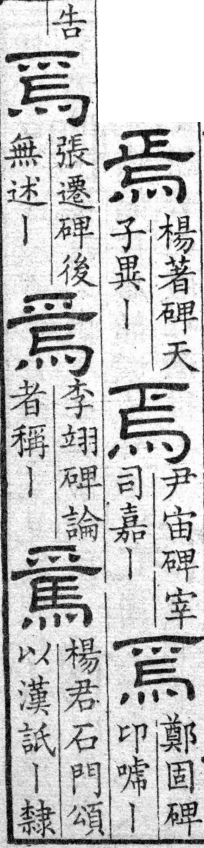 焉
楊著碑天
子異丨
焉
尹宙碑宰
司嘉丨
焉
鄭固碑
卬嘑丨
告
焉
張遷碑後
無述丨
焉
李翊碑論
者稱丨
焉
楊君石門頌
以漢詆丨隸